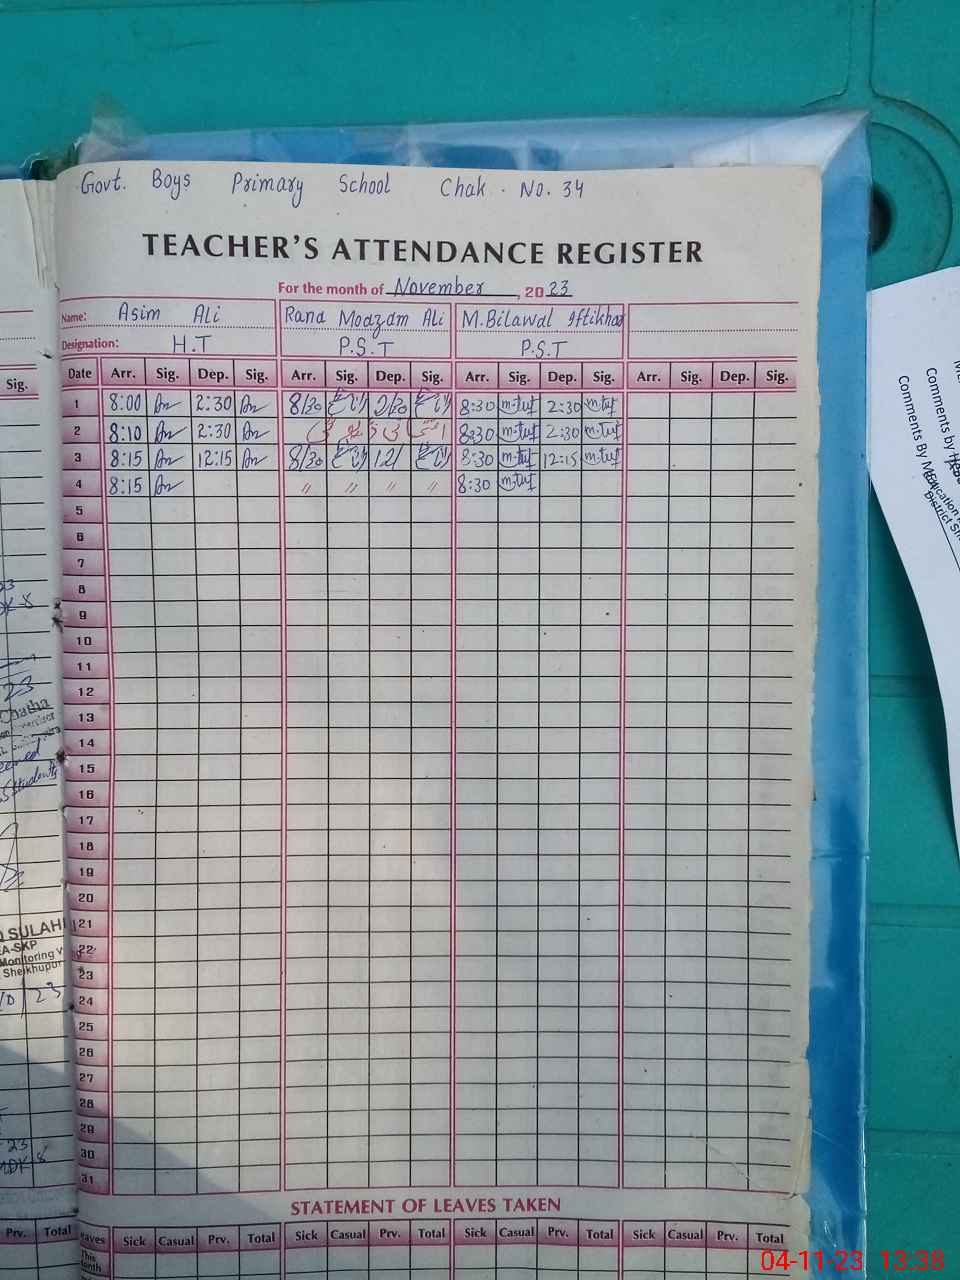 Govt. Boys Primary School Chak. No. 34
TEACHER'S ATTENDANCE REGISTER
For the month of November, 2023
Name: Asim Ali Rana Moazam Ali M.Bilawal Iftikhar
Designation: H.T P.S.T P.S.T
Sig. Date Arr. Sig. Dep. Sig. Arr. Sig. Dep. Sig. Arr. Sig. Dep. Sig. Arr. Sig. Dep. Sig.
1 8:00 2:30 8/30 2/30 8:30 2:30
2 8:10 2:30 8:30 2:30
3 8:15 12:15 8/30 8:30 12:15
4 8:15 " " " " 8:30
5
6
7
8
9
10
11
12
13
14
15
16
17
18
19
20
21
22
23
24
25
26
27
28
29
30
31
STATEMENT OF LEAVES TAKEN
Prv. Total Leaves Sick Casual Prv. Total Sick Casual Prv. Total Sick Casual Prv. Total Sick Casual Prv. Total
This Month
23
Chatha
Students
SULAH
EA-SKP
Monitoring
Sheikhupur
10/23
23
Comments by
Comments By MEA
District
04-11-23 13:38